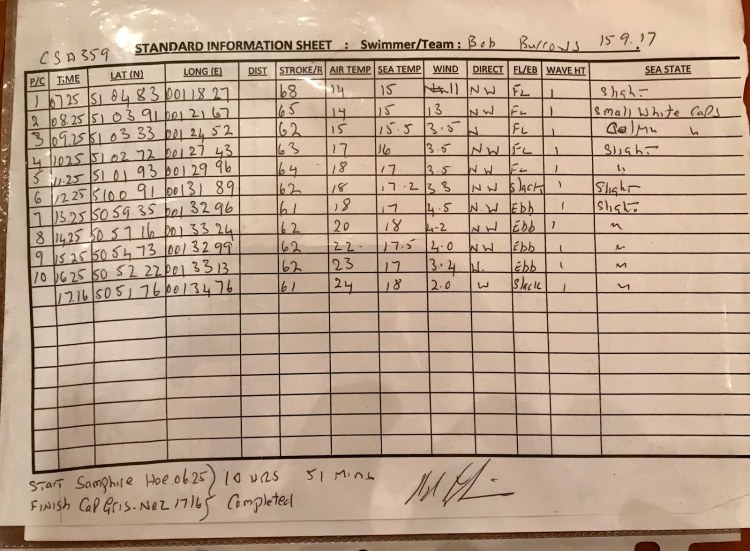 CSA359 STANDARD INFORMATION SHEET : Swimmer/Team : Bob Burrows 15.9.17
P/C TIME LAT (N) LONG (E) DIST STROKE/R AIR TEMP SEA TEMP WIND DIRECT FL/EB WAVE HT SEA STATE
1 0725 51 04 83 001 18 27 68 14 15 11 NW FL 1 Slight
2 08.25 51 03 91 001 21 67 65 14 15 13 NW FL 1 Small White Caps
3 09.25 51 03 33 001 24 52 62 15 15.5 3.5 N FL 1
4 1025 51 02 72 001 27 43 63 17 16 3.5 NW FL 1 Slight
5 11.25 51 01 93 001 29 96 64 18 17 3.5 NW FL 1 "
6 1225 5100 91 00131 89 62 18 17.2 33 NW Slack 1 Slight
7 1325 5059 35 001 3296 61 18 17 4.5 NW Ebb 1 Slight
8 1425 505716 001 3324 62 20 18 4.2 NW Ebb 1 "
9 1525 5054 73 001 3299 62 22 17.5 4.0 NW Ebb 1 "
10 1625 50 52 22 001 3313 62 23 17 3.4 N. Ebb 1 "
1716 505176 001 3476 61 24 18 2.0 W Slack 1 "
Start Samphire Hoe.06.25) 10 HRS 51 Mins
Finish Cap Gris-Nez 1716 Completed